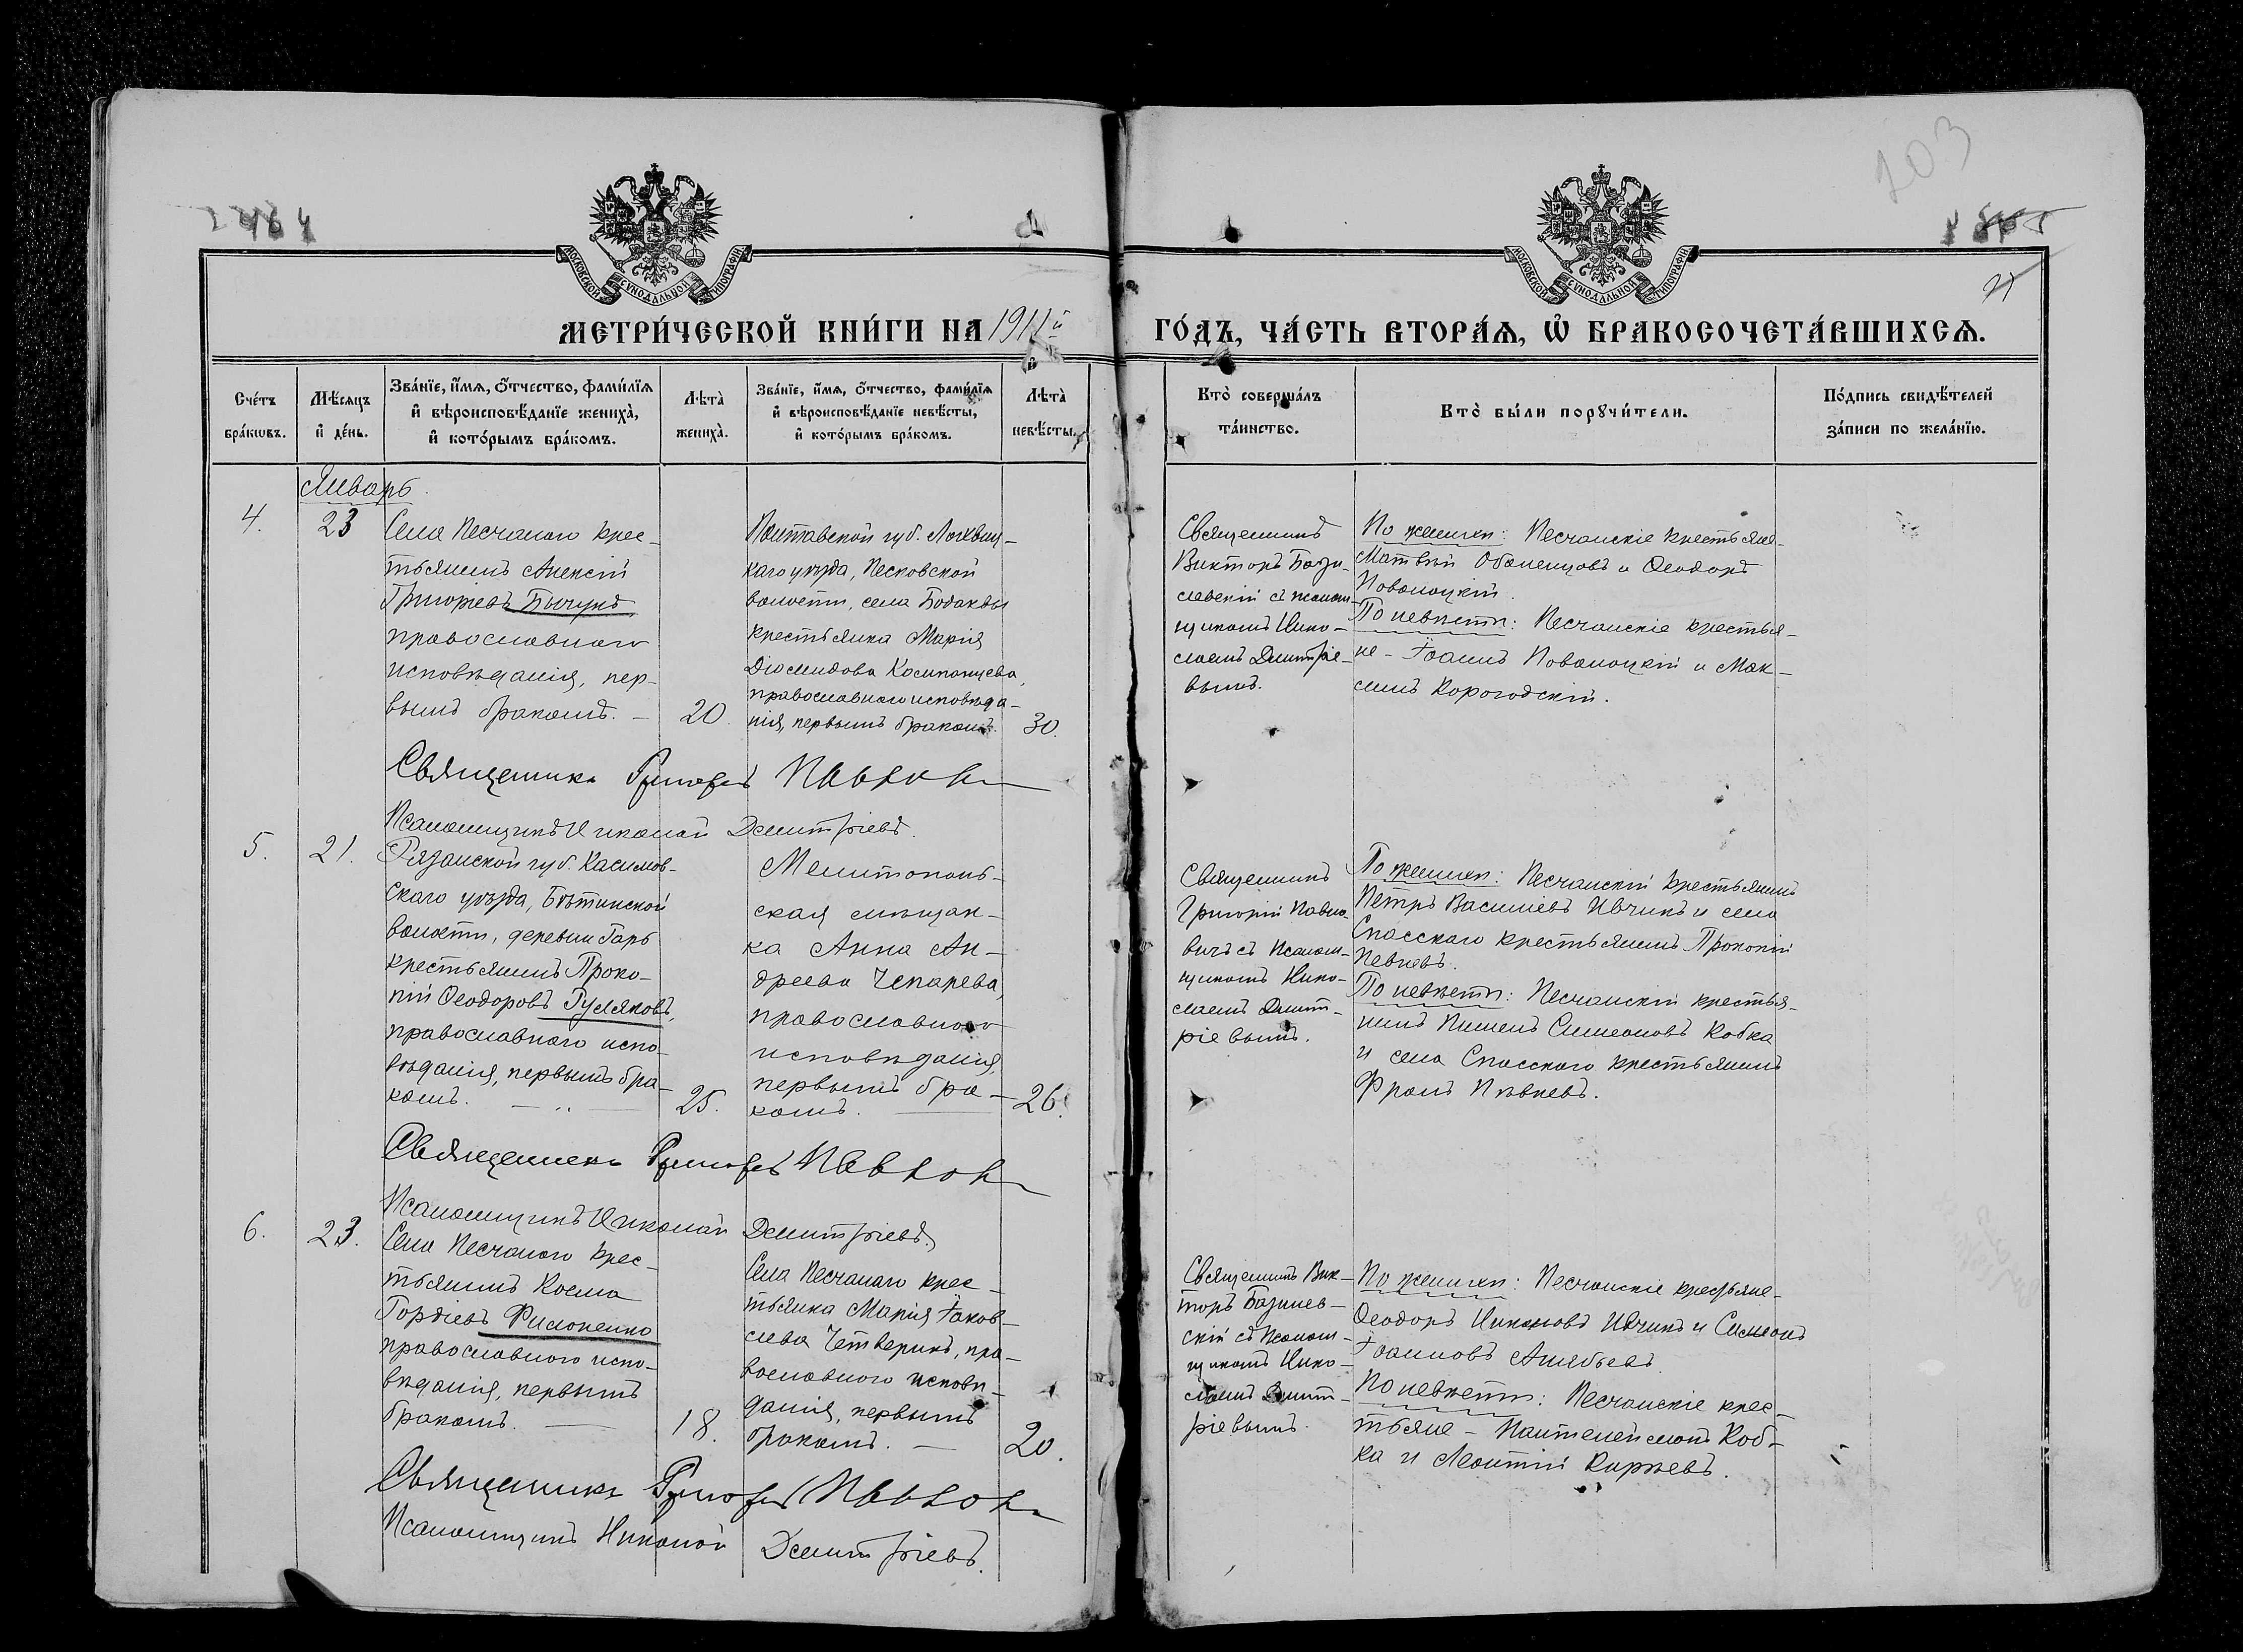 103
МОСКОВСКОЙ СѴНОДАЛЬНОЙ ТИПОГРАФІИ
МОСКОВСКОЙ СѴНОДАЛЬНОЙ ТИПОГРАФІИ
21
МЕТРИ́ЧЕСКОЙ КНИ́ГИ НА 1911й ГО́ДЪ, ЧА́СТЬ ВТОРА́Я, Ѡ БРАКОСОЧЕТА́ВШИХСЯ.
Сче́тъ
бра́кѡвъ.
Мѣ́сяцъ
и҆ де́нь.
Зва́нїе, и҆́мѧ, ѻ҆́тчество, фами́лїѧ
и҆ вѣроисповѣ́данїе жениха̀,
и҆ кото́рымъ бра́комъ.
Лѣта̀
жениха̀.
Зва́нїе, и҆́мѧ, ѻ҆́тчество, фами́лїѧ
и҆ вѣроисповѣ́данїе невѣ́сты,
и҆ кото́рымъ бра́комъ.
Лѣта̀
невѣ́сты.
Кто̀ соверша́лъ
та́инство.
Кто̀ бы́ли порꙋчи́тели.
По́дпись свидѣ́телей
за́писи по жела́нїю.
Январь
4.
23
Села Песчаного крес-
тьянинъ Алексій
Григорьевъ Бычукъ
православного
исповѣданія, пер-
вымъ бракомъ. —
20.
Полтавской губ. Лохвиц-
каго уѣзда, Песковской
волости, села Бодаквы
крестьянка Марія
Діомидова Компанцева,
православного исповѣда-
нія, первымъ бракомъ.
30.
Священникъ
Виктор Бази-
левскій съ псалом-
щикомъ Нико-
лаемъ Дмитріе-
вымъ.
По женихѣ: Песчанскіе крестьяне-
Матвѣй Обаленцовъ и Ѳеодоръ
Новолоцкій.
По невѣстѣ: Песчанскіе крестья-
не - Іоаннъ Новолоцкій и Мак-
симъ Корогодскій.
Священникъ Григорій Павлов
Псаломщикъ Николай Дмитріевъ.
5.
21.
Рязанской губ. Касимов-
скаго уѣзда, Бѣтинской
волости, деревни Гарь
крестьянинъ Проко-
пій Ѳеодоровъ Гусляковъ,
православного испо-
вѣданія, первымъ бра-
комъ.
25.
Мелитополь-
ская мѣщан-
ка Анна Ан-
дреева Чепарева,
православного
исповѣданія,
первымъ бра-
комъ.
26.
Священникъ
Григорій Павло-
вичъ съ псалом-
щикомъ Нико-
лаемъ Дмит-
ріевымъ.
По женихѣ: Песчанскій крестьянинъ
Петръ Васильевъ Ивчинъ и села
Спасскаго крестьянинъ Прокопій
Певневъ.
По невѣстѣ: Песчанскій крестья-
нинъ Пимен Симеоновъ Кобка
и села Спасского крестьянинъ
Фролъ Пѣвневъ.
Священникъ Григорій Павлов
Псаломщикъ Николай Дмитріевъ.
6.
23.
Села Песчаного крес-
тьянинъ Косма
Гордіевъ Филоненко
православного испо-
вѣданія, первымъ
бракомъ. —
18.
Села Песчанаго крес-
тьянка Марія Іаков-
лева Четверикъ, пра-
вославного исповѣ-
данія, первымъ
бракомъ. —
20.
Священникъ Вик-
торъ Базилев-
скій съ псалом-
щикомъ Нико-
лаемъ Дмит-
ріевымъ.
По женихѣ: Песчанскіе крестьяне-
Ѳеодоръ Никоновъ Ивчинъ и Симеонъ
Іоанновъ Алябьевъ.
По невѣстѣ: Песчанскіе крес-
тьяне - Пантелеймонъ Коб-
ка и Леонтій Киріевъ.
Священникъ Григорій Павлов
Псаломщикъ Николай Дмитріевъ.